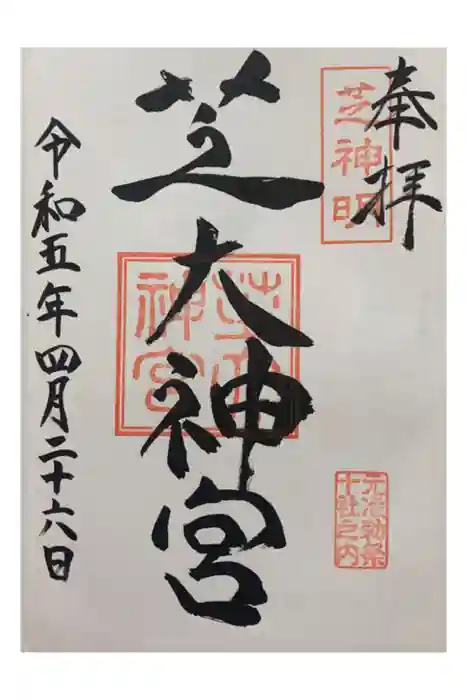 奉拝
芝神明
芝大神宮
芝大神宮
元治勅祭
十社之内
令和五年四月二十六日